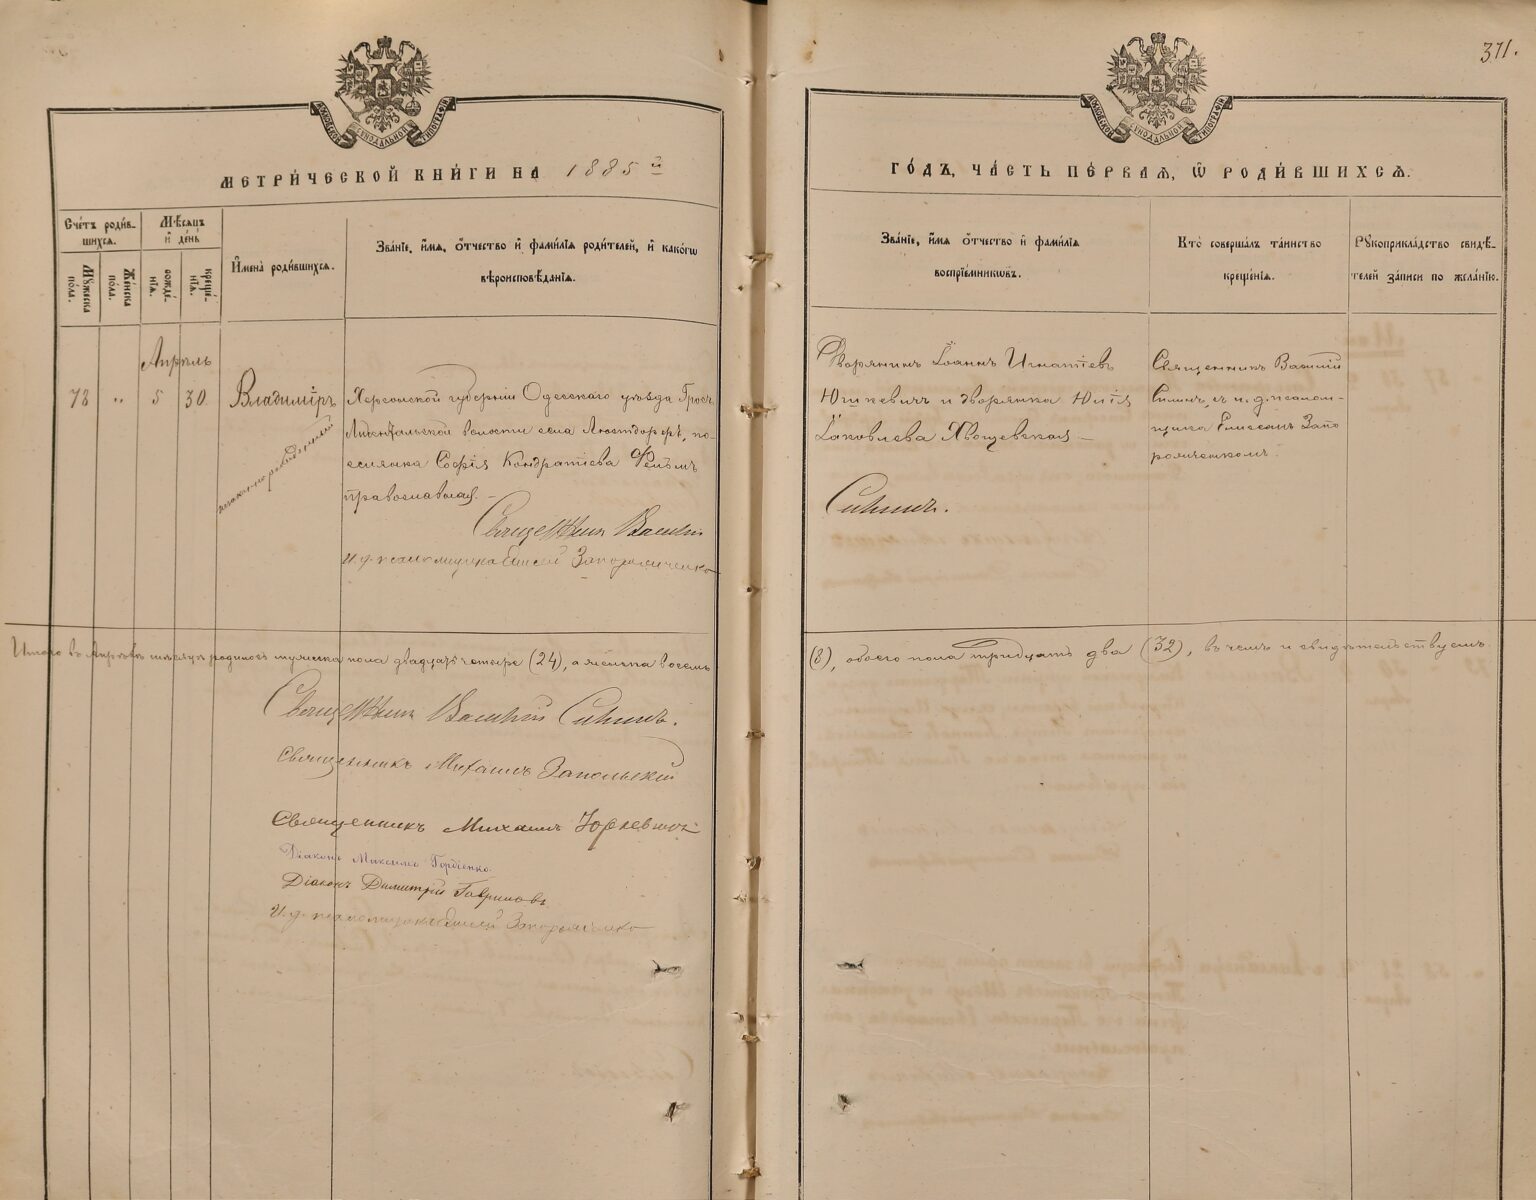 371.
МОСКОВСКОЙ СѴНОДАЛЬНОЙ ТИПОГРАФІИ
МОСКОВСКОЙ СѴНОДАЛЬНОЙ ТИПОГРАФІИ
МЕТРИ́ЧЕСКОЙ КНИ́ГИ НА 1885й
ГО́ДЪ, ЧА́СТЬ ПЕ́РВАѦ, Ѿ РОДИ́ВШИХСѦ.
Сче́тъ роди́в-
шихсѧ.
Мѣ́сѧцъ
и҆ де́нь
Мꙋ́жеска
по́ла.
Же́нска
по́ла.
рожде́-
нїѧ.
креще́-
нїѧ.
И҆мена̀ роди́вшихсѧ.
Зва́нїе, и҆́мѧ, ѻ҆́тчество и҆ фами́лїѧ роди́телей, и҆ како́гѡ
вѣроисповѣ́данїѧ.
Зва́нїе, и҆́мѧ ѻ҆́тчество и҆ фами́лїѧ
воспрїе́мникѡвъ.
Кто̀ соверша́лъ та́инство
креще́нїѧ.
Рꙋкоприкла́дство свидѣ́-
телей за́писи по жела́нїю.
Апрѣль
78 „ 5 30 Владиміръ
незаконнорожденный
Херсонской губерніи Одесскаго уѣзда Гросъ
Либентальской волости села Люстдорфъ, по-
селянка Софія Кондратіева Фельмъ
православная. –
Священникъ Василій
И. д. псаломщика Елисей Запорожченко
Дворянинъ Іоаннъ Игнатіевъ
Юшкевичъ и дворянка Юлія
Іаковлева Хвощевская –
Силинъ.
Священникъ Василій
Силинъ съ и. д. псалом-
щика Елисеемъ Запо
рожченкомъ.
Итого въ Апрѣлѣ мѣсяцѣ родилось мужеска пола двадцать четыре (24), а женска восемь
(8), обоего пола тридцать два (32), въ чемъ и свидѣтельствуемъ.
Священникъ Василій Силинъ.
Священникъ Михаилъ Запольскій
Священникъ Михаилъ Юркевичъ
Діаконъ Максимъ Гордіенко
Діаконъ Димитрій Гавриловъ
И. д. псаломщика Елисей Запорожченко